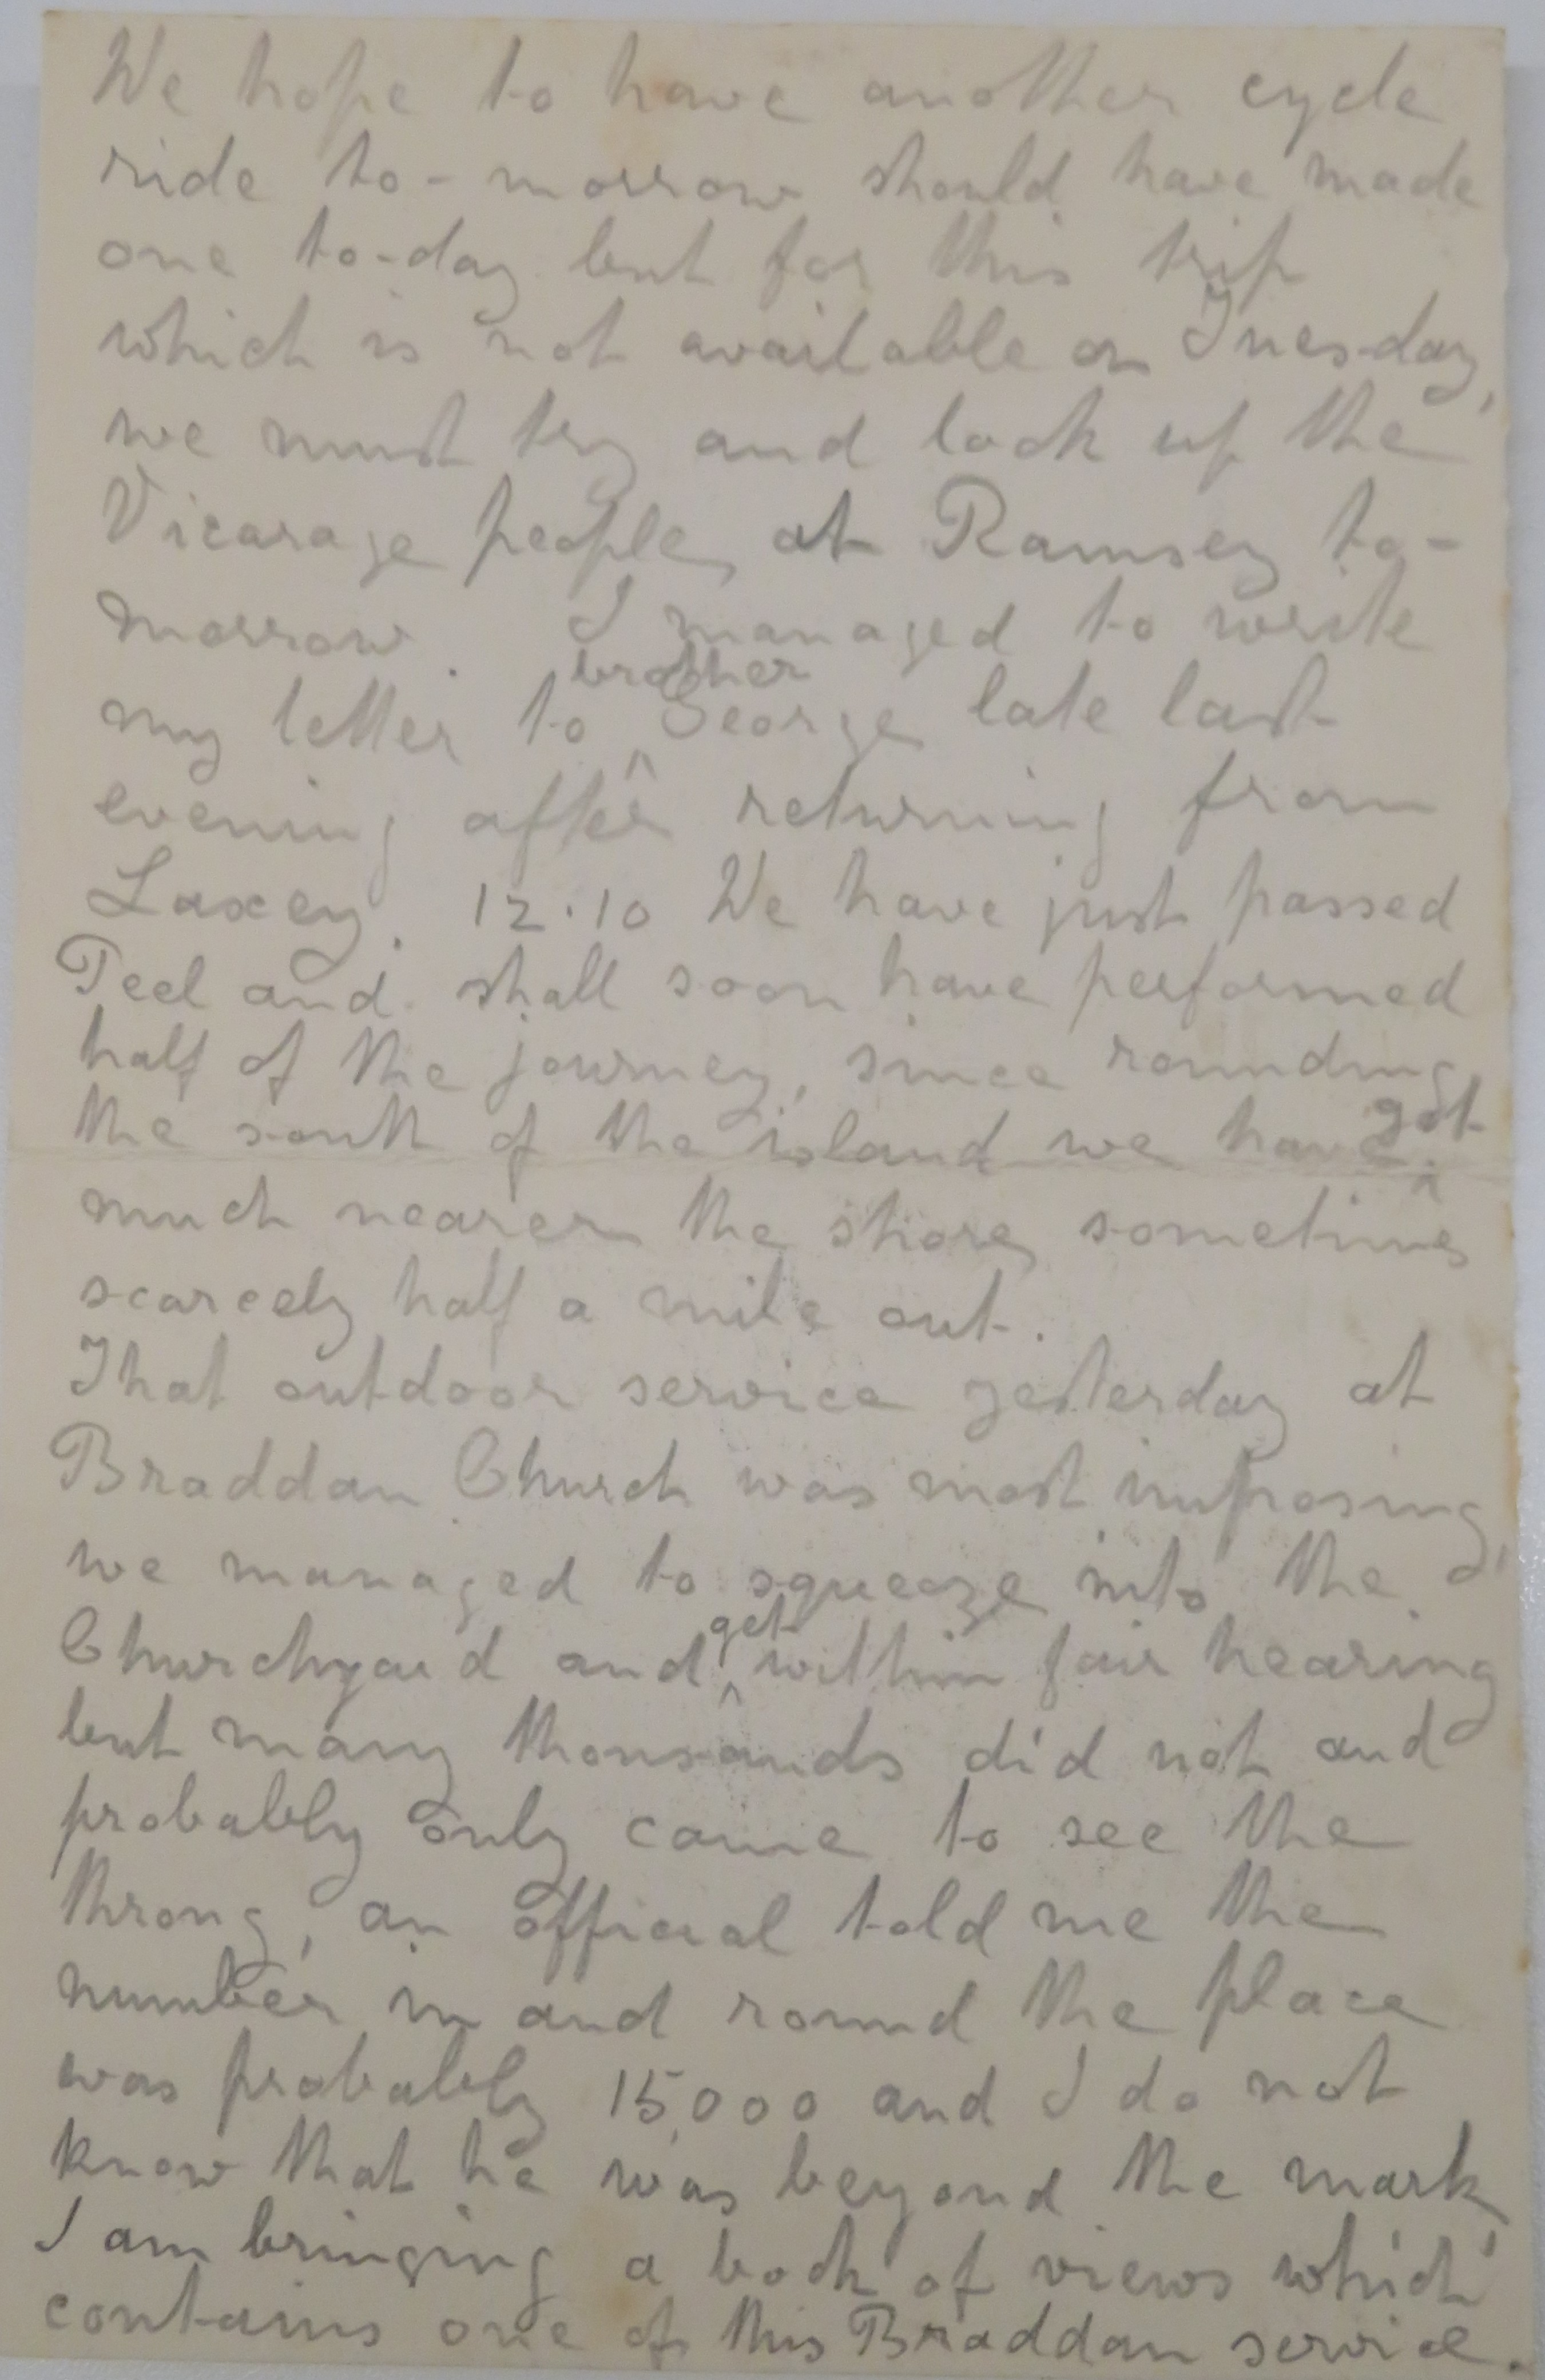 We hope to have another cycle
ride to-morrow should have made
one to-day but for this trip
which is not available on Tuesday,
we must try and look up the
Vicarage people, at Ramsey to-
morrow. I managed to write
my letter to brother George late last
evening after returning from
Laxey. 12.10 We have just passed
Peel and shall soon have performed
half of the journey, since rounding
the south of the island we have got
much nearer the shore, sometimes
scarcely half a mile out.
That outdoor service yesterday at
Braddan Church was most imposing,
we managed to squeeze into the
Churchyard and get within fair hearing
but many thousands did not and
probably only came to see the
throng, an official told me the
number in and round the place
was probably 15,000 and I do not
know that he was beyond the mark,
I am bringing a book of views which
contains one of this Braddan service.